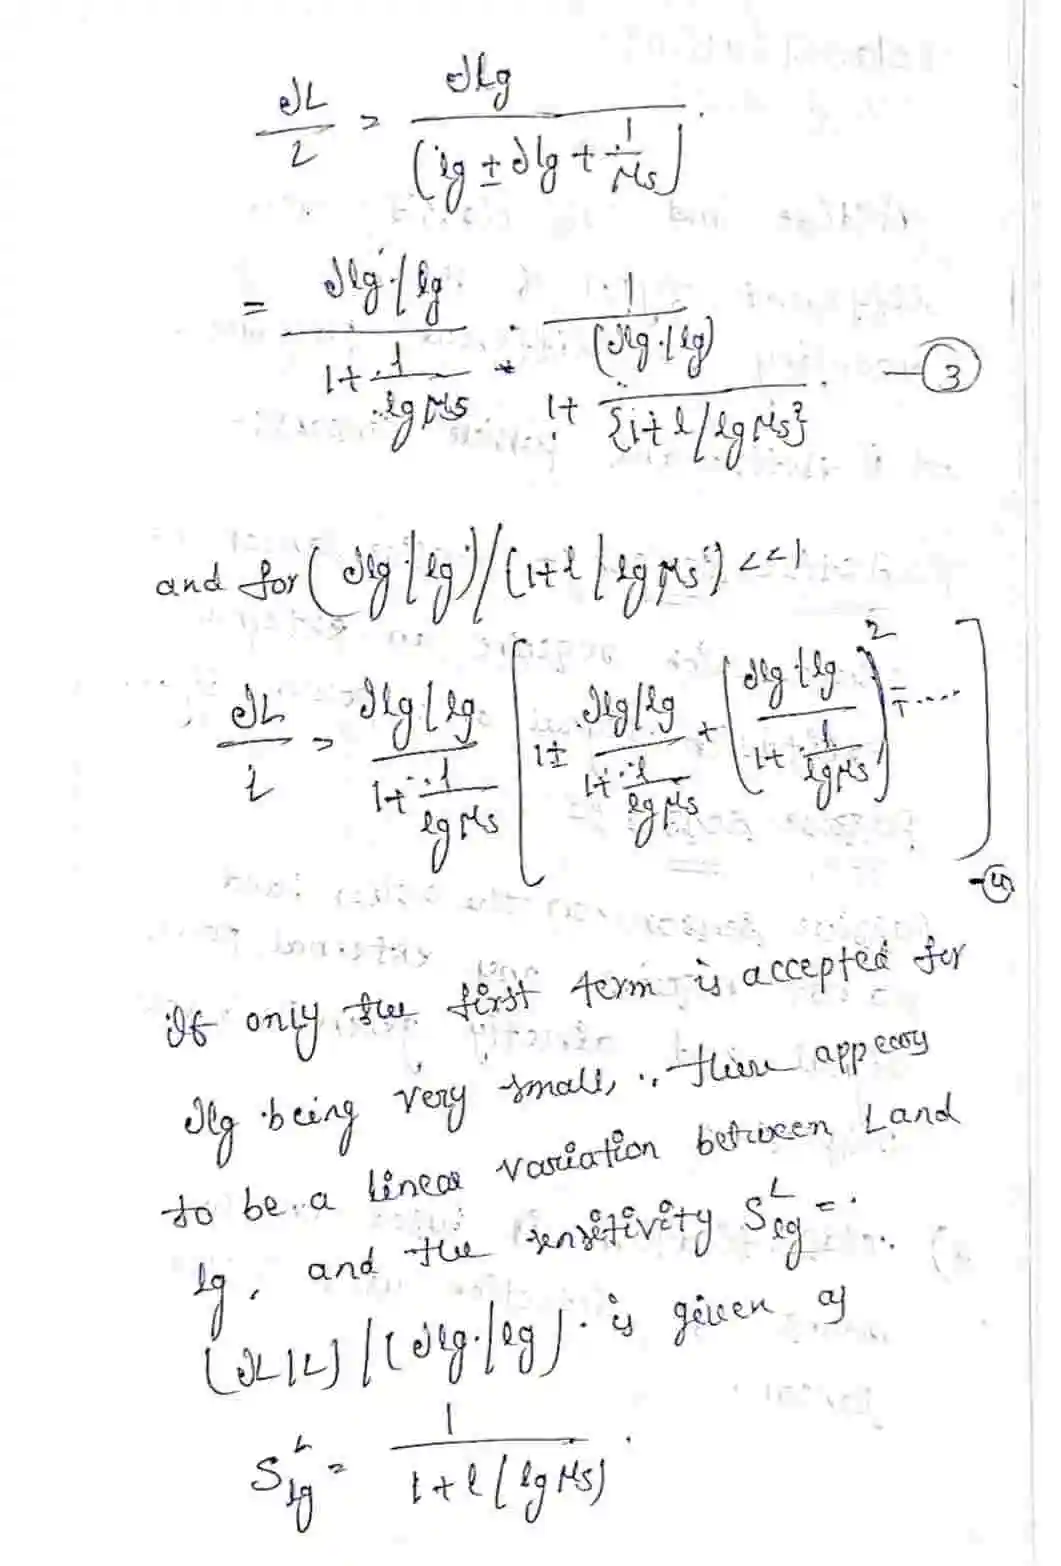 ∂L/L = ∂lg / (lg ± ∂lg + 1/μs).
= (∂lg/lg) / (1 + 1/(lg μs)) · 1 / (1 + (∂lg/lg) / {1 + l/lg μs}). — ③
and for (∂lg/lg)/(1+l/lg μs) <<1
∂L/L = (∂lg/lg) / (1 + 1/(lg μs)) [1 ± (∂lg/lg) / (1 + l/(lg μs)) + ((∂lg/lg) / (1 + 1/(lg μs)))² ∓ ....] - ④
If only the first term is accepted for
∂lg being very small, there appears
to be a linear variation between L and
lg, and the sensitivity S^L_lg =
(∂L/L)/(∂lg/lg). is given as
S^L_lg = 1 / (1 + l/(lg μs)).